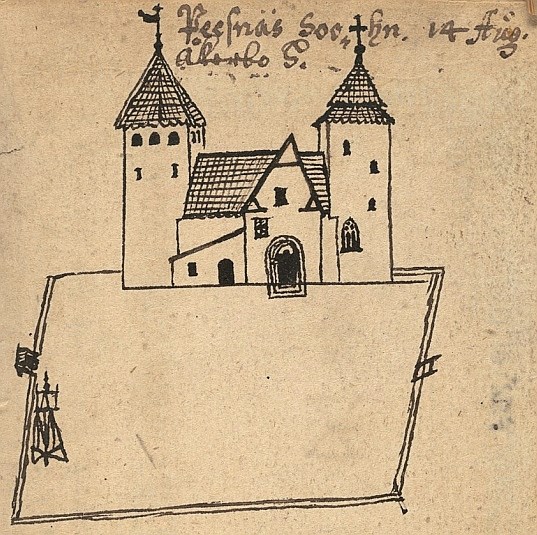 Peesnäs Soo,, hn. 14 Aug.
Åkerbo